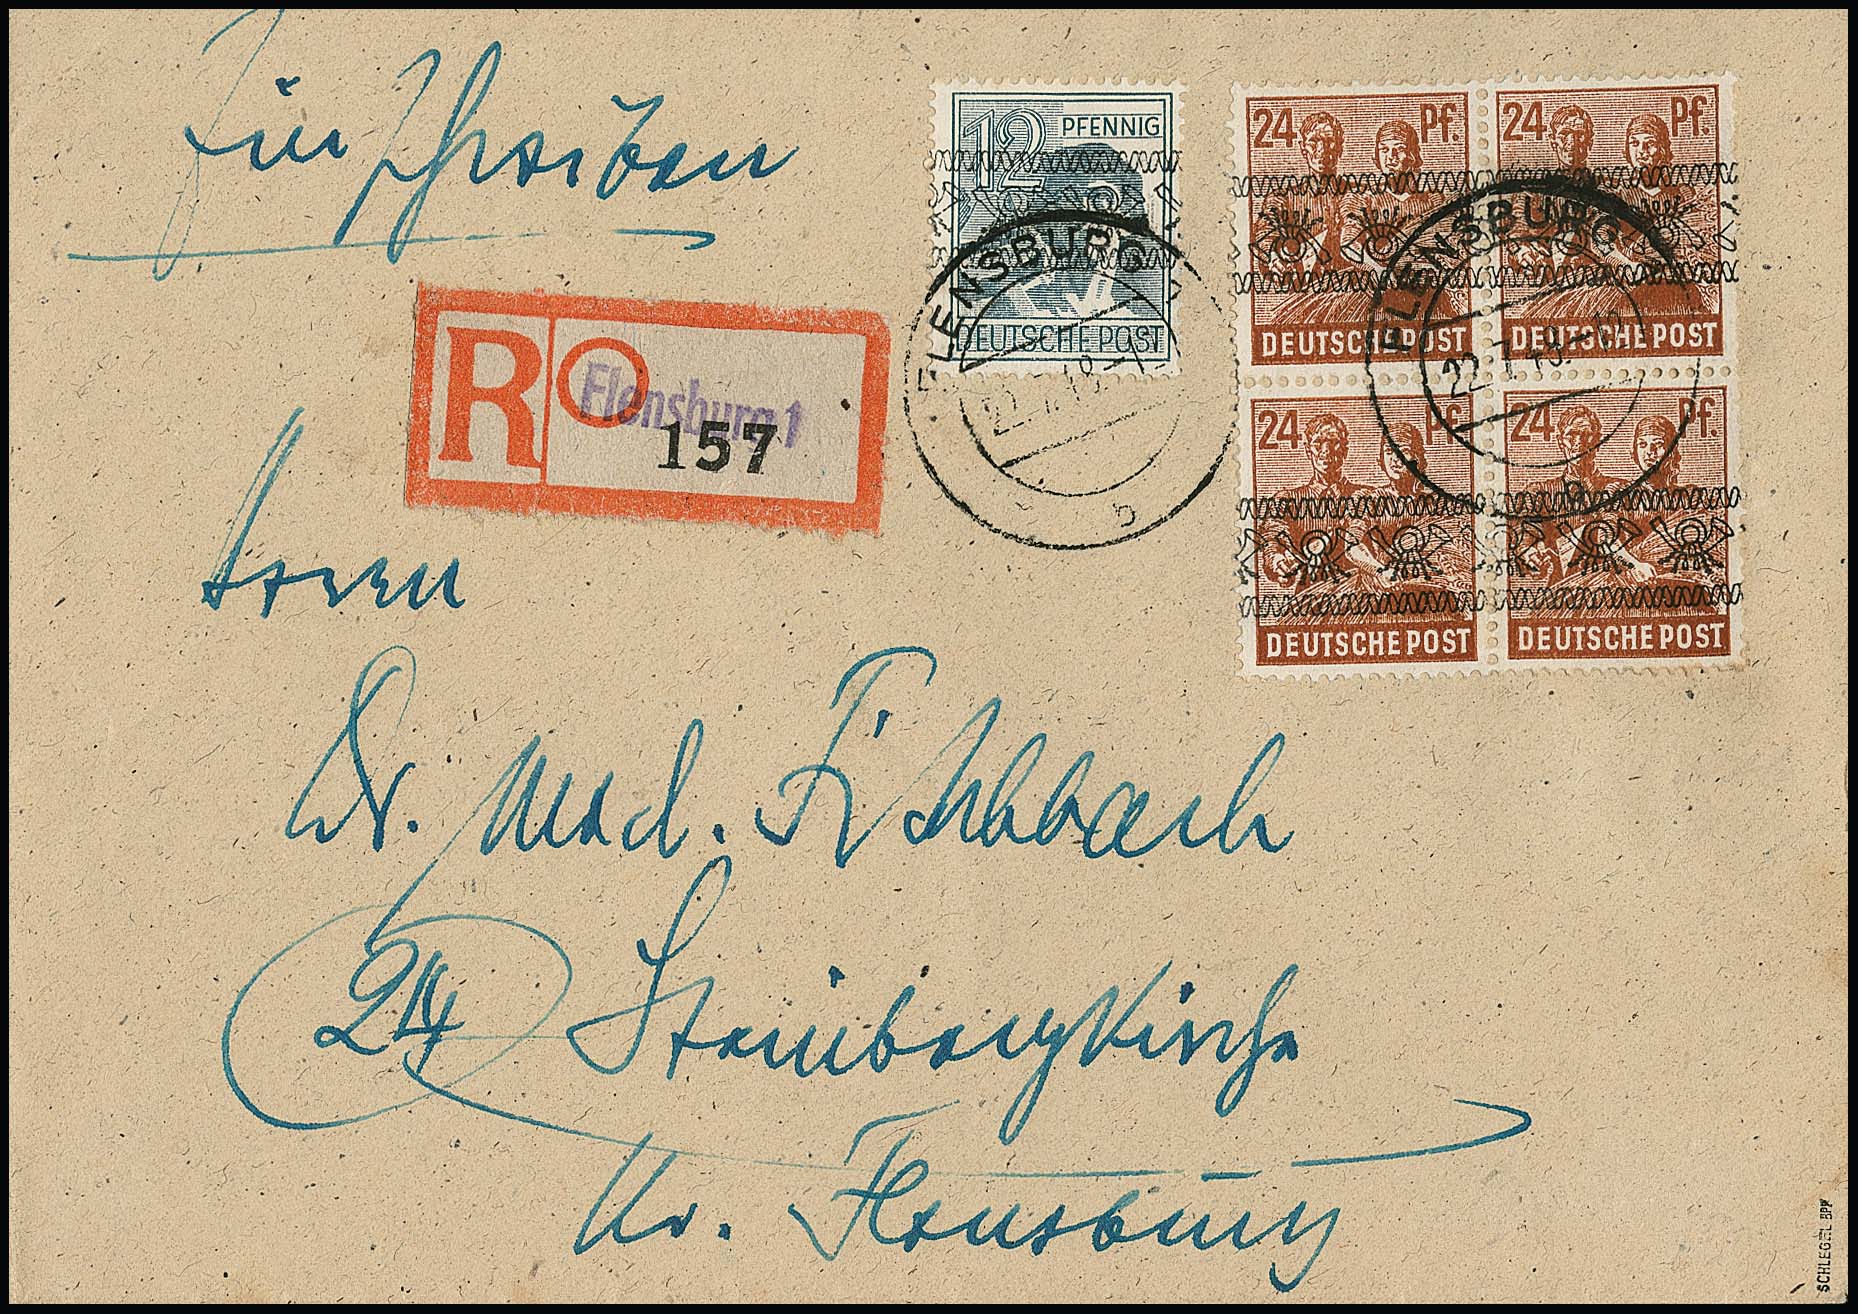 Einschreiben
12 PFENNIG
DEUTSCHE POST
24 Pf. 24 Pf.
DEUTSCHE POST DEUTSCHE POST
24 Pf. 24 Pf.
DEUTSCHE POST DEUTSCHE POST
FLENSBURG
22.7.48.-
b
FLENSBURG
22.7.48.-12
R Flensburg 1
157
Herrn
Dr. med.
24 Steinbergkirche
Kr. Flensburg
SCHLEGEL BPP